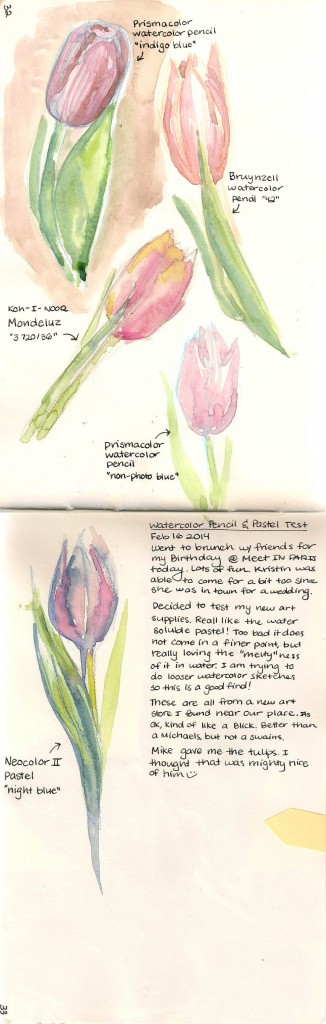 32
Prismacolor
watercolor pencil
"indigo blue"
Bruynzell
watercolor
pencil "42"
KOH-I-NOOR
Mondeluz
"3720/36"
Prismacolor
watercolor
pencil
"non-photo blue"
Watercolor Pencil & Pastel Test
Feb 16 2014
Went to brunch w/ friends for
my Birthday @ Meet IN PARIS
today. Lots of fun. Kristin was
able to come for a bit too since
she was in town for a wedding.
Decided to test my new art
supplies. Reall like the water
soluble pastel! Too bad it does
not come in a finer point, but
really loving the "melty"ness
of it in water. I am trying to
do looser watercolor sketches
so this is a good find!
These are all from a new art
store I found near our place. Its
OK, kind of like a Blick. Better than
a Michaels, but not a Swains.
Mike gave me the tulips. I
thought that was mighty nice
of him
Neocolor II
Pastel
"night blue"
33